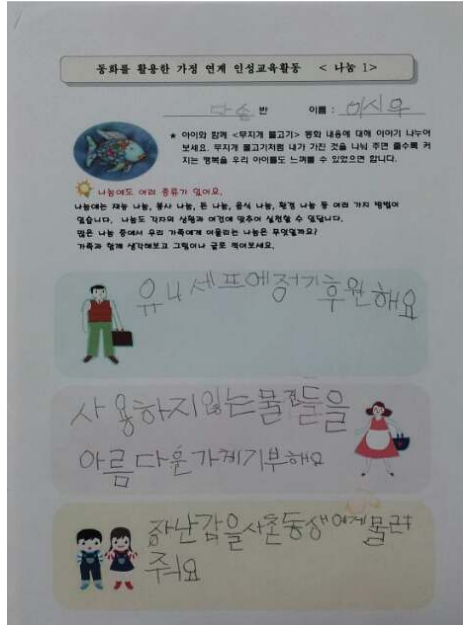 동화를 활용한 가정 연계 인성교육활동 < 나눔 1>
반 이름 : 이시우
★ 아이와 함께 <무지개 물고기> 동화 내용에 대해 이야기 나누어
보세요. 무지개 물고기처럼 내가 가진 것을 나눠 주면 줄수록 커
지는 행복을 우리 아이들도 느껴볼 수 있었으면 합니다.
나눔에도 여러 종류가 있어요.
나눔에는 재능 나눔, 봉사 나눔, 돈 나눔, 음식 나눔, 환경 나눔 등 여러 가지 방법이
있습니다. 나눔도 각자의 상황과 여건에 맞추어 실천할 수 있답니다.
많은 나눔 중에서 우리 가족에게 어울리는 나눔은 무엇일까요?
가족과 함께 생각해보고 그림이나 글로 적어보세요.
유니세프에정기후원해요
사용하지않는물건들을
아름다운가게기부해요
장난감을사촌동생에게물려
줘요